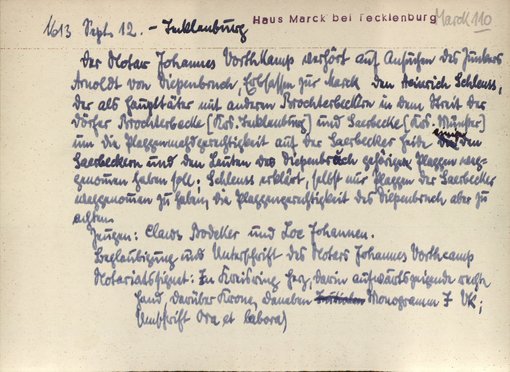 1613 Sept. 12. – Tecklenburg Haus Marck bei Tecklenburg Marck 110
Der Notar Johannes Vorthkamp verhört auf Ansuchen des Junkers
Arnoldt von Diepenbroch, Erbsassen zur Marck den Heinrich Schleuss,
der als Haupttäter mit anderen Brochterbeckern in dem Streit der
Dörfer Brochterbecke [Krs. Tecklenburg] und Saerbecke [Krs. Münster]
um die Plaggenmahdgerechtigkeit auf der Saerbecker Heide den
Saerbeckern und den Leuten des Diepenbroch gehörige Plaggen weg-
genommen haben soll; Schleuss erklärt, selbst nur Plaggen der Saerbecker
weggenommen zu haben, die Plaggengerechtigkeit des Diepenbroch aber zu
achten.
Zeugen: Claus Bodeker und Loe Johannen.
Beglaubigung und Unterschrift des Notars Johannes Vorthcamp
Notariatssignet: In Kreisring Herz, darin aufwärtszeigende rechte
Hand, darüber Krone, daneben Initialen Monogramm J VK;
Umschrift Ora et labora)